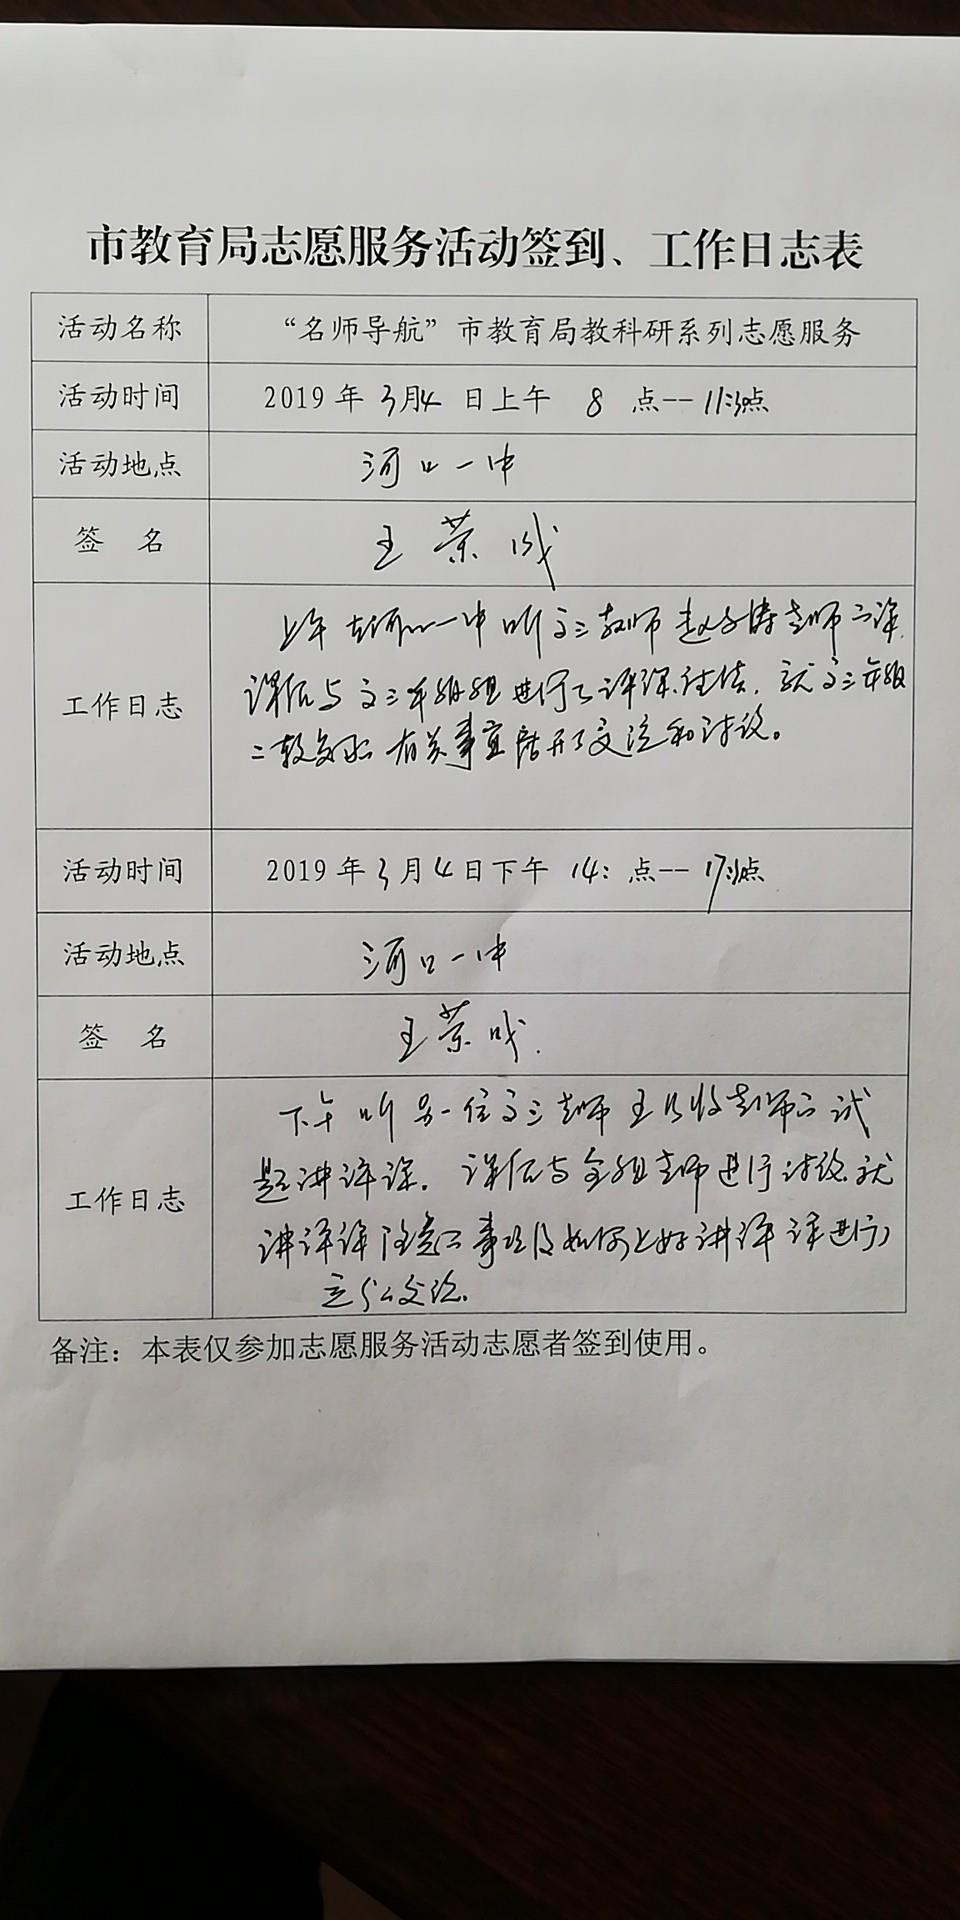 市教育局志愿服务活动签到、工作日志表
活动名称 “名师导航”市教育局教科研系列志愿服务
活动时间 2019年3月4日上午 8 点--11:30点
活动地点 河口一中
签 名 王荣成
上午去河口一中听高三教师赵子涛老师的课,
课后与高三年级组进行了评课,
工作日志
二轮复习有关事宜展开了交流和讨论。
活动时间 2019年3月4日下午 14: 点--17:30点
活动地点 河口一中
签 名 王荣成.
下午听另一位高三老师王收老师的试
题讲评课。课后与全组老师进行讨论,就
工作日志
讲评课注意的事项及如何上好讲评课进行了
充分的交流.
备注：本表仅参加志愿服务活动志愿者签到使用。